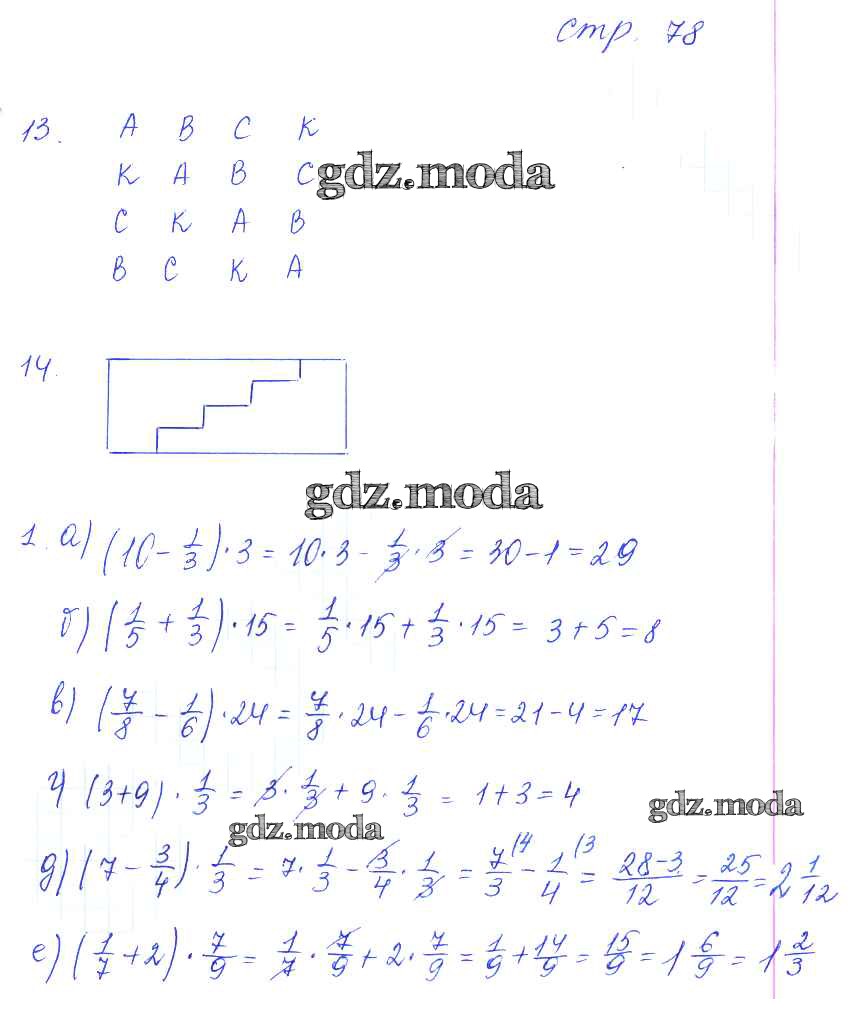 стр. 78
13. A B C K
K A B C
gdz.moda
C K A B
B C K A
14.
gdz.moda
1. а) (10 - 1/3) · 3 = 10 · 3 - 1/3 · 3 = 30 - 1 = 29
б) (1/5 + 1/3) · 15 = 1/5 · 15 + 1/3 · 15 = 3 + 5 = 8
в) (7/8 - 1/6) · 24 = 7/8 · 24 - 1/6 · 24 = 21 - 4 = 17
г) (3+9) · 1/3 = 3 · 1/3 + 9 · 1/3 = 1 + 3 = 4
gdz.moda
gdz.moda
д) (7 - 3/4) · 1/3 = 7 · 1/3 - 3/4 · 1/3 = 7/3 (4 - 1/4 (3 = 28-3/12 = 25/12 = 2 1/12
е) (1/7 + 2) · 7/9 = 1/7 · 7/9 + 2 · 7/9 = 1/9 + 14/9 = 15/9 = 1 6/9 = 1 2/3